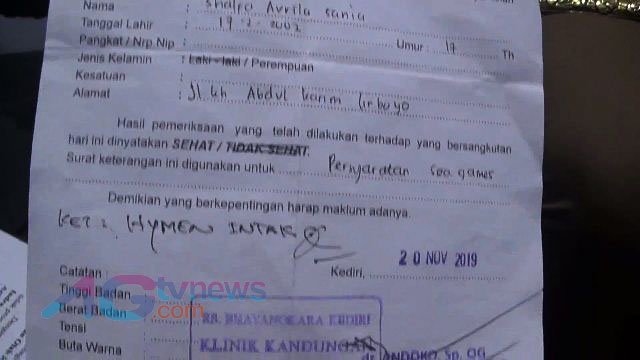 Nama : Shalfa Avrila Sania
Tanggal Lahir : 17 - 2 - 2002
Pangkat / Nrp Nip : Umur : 17 Th
Jenis Kelamin : Laki - laki / Perempuan
Kesatuan :
Alamat : Jl. Kh Abdul Karim Lirboyo
Hasil pemeriksaan yang telah dilakukan terhadap yang bersangkutan
hari ini dinyatakan SEHAT / TIDAK SEHAT.
Surat keterangan ini digunakan untuk Persyaratan Sea games
Demikian yang berkepentingan harap maklum adanya.
Ket : HYMEN INTAK
Kediri, 20 NOV 2019
Catatan :
Tinggi Badan :
Berat Badan :
Tensi :
Buta Warna :
AGtvnews
.com
RS. BHAYANGKARA KEDIRI
KLINIK KANDUNGAN
dr. ANDOKO, Sp. OG